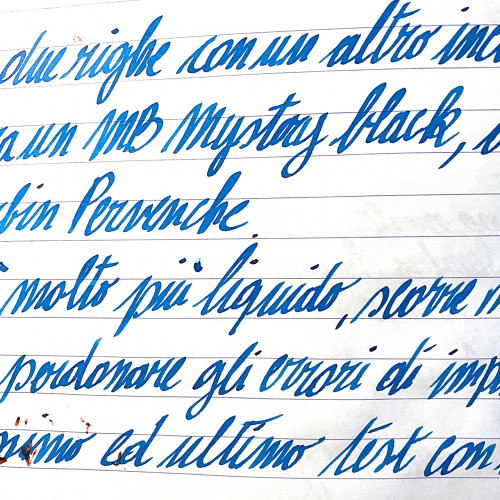 due righe con un altro inc
a un MB Mystery black,
bin Pervenche
molto più liquido, scorre m
perdonare gli errori di imp
nimo ed ultimo test con